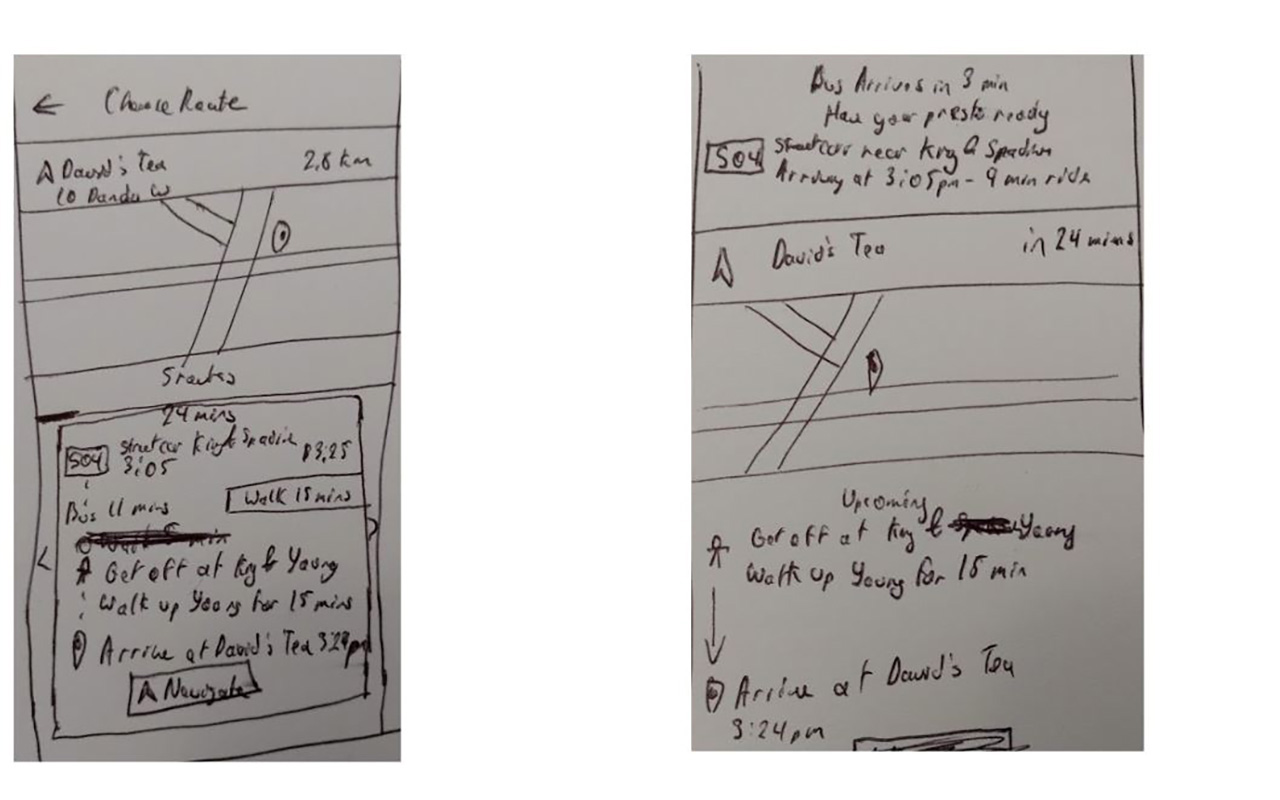 ← Choose Route
David's Tea
2.6 km
10 Dundas W
5 routes
24 mins
504
Streetcar King & Spadina
3:05
$3.25
Bus 11 mins
Walk 15 mins
Get off at King & Young
Walk up Young for 15 mins
Arrive at David's Tea 3:29pm
Navigate
Bus Arrives in 3 min
Have your presto ready
504
Streetcar near King & Spadina
Arriving at 3:05pm - 9 min ride
David's Tea
in 24 mins
Upcoming
Get off at King & Young
Walk up Young for 15 min
Arrive at David's Tea
3:24pm